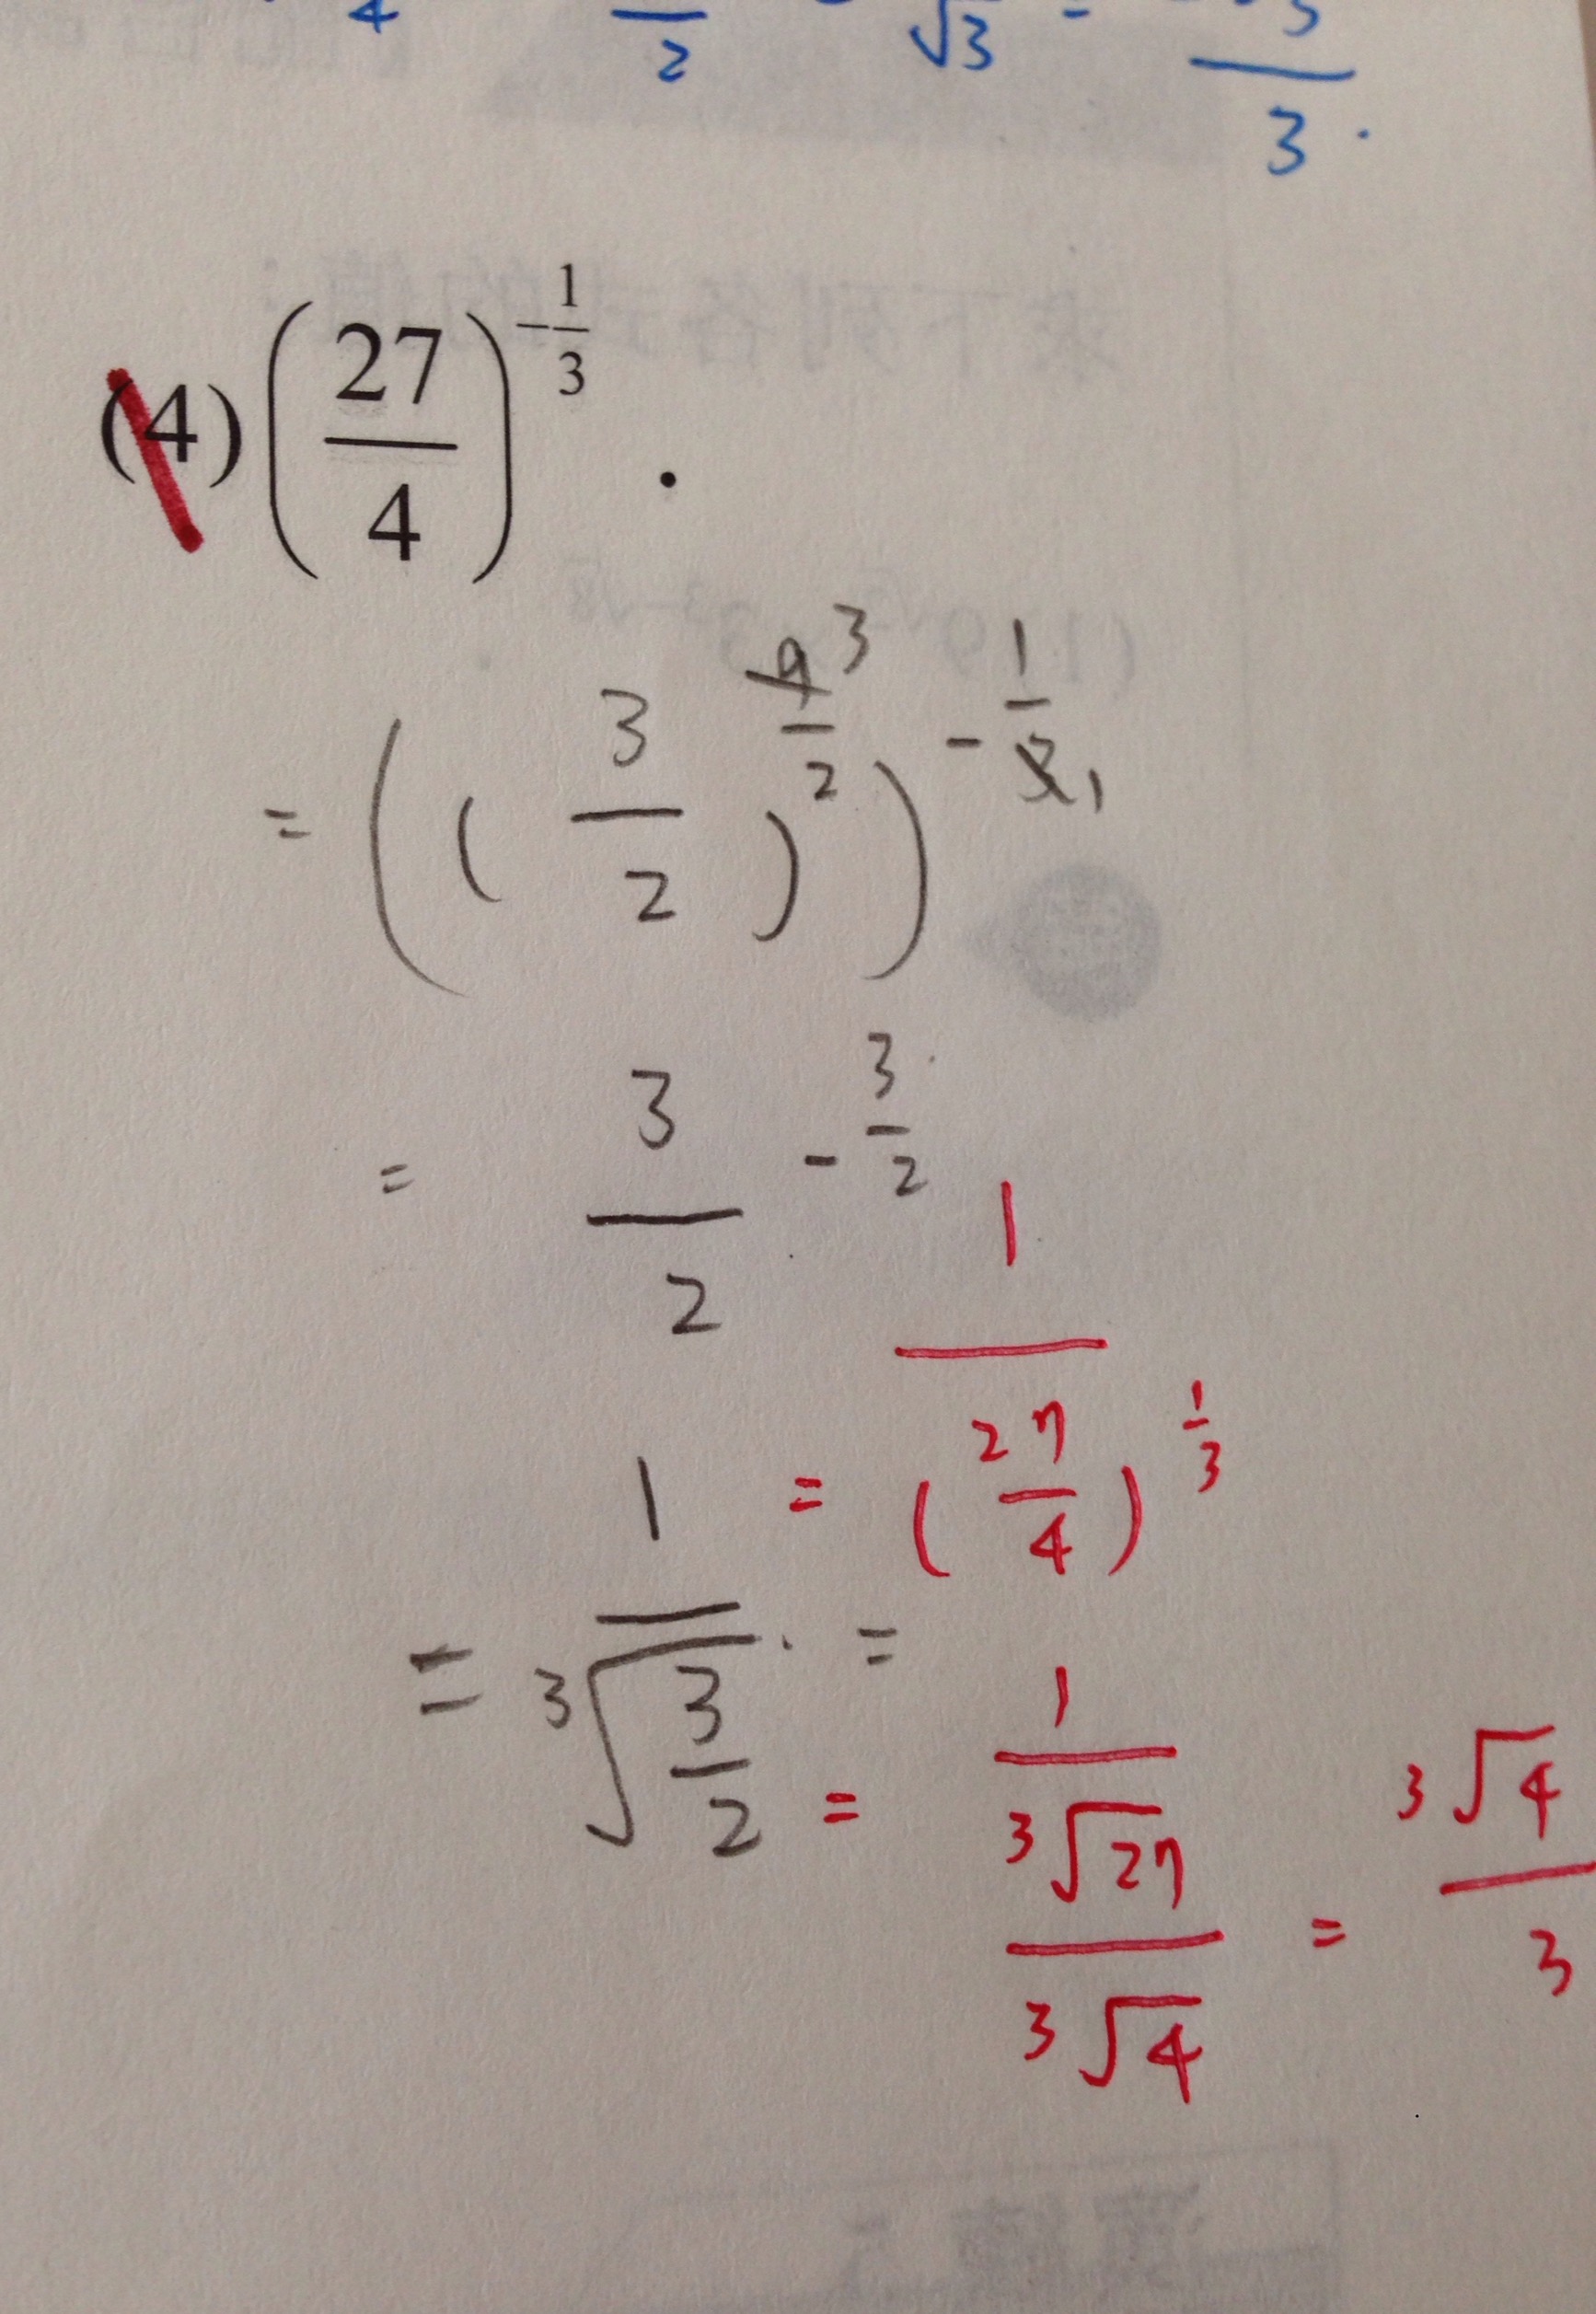 4   2   √3 = 3
3 .
(4) (27/4)^(-1/3) .
= ((3/2)^(9̶ 3/2))^(-1/3̶ 1)
= 3/2 ^(-3/2)
= 1/∛(3/2) . =
= 1/(27/4)^(1/3)
= 1/(∛27/∛4) = ∛4/3